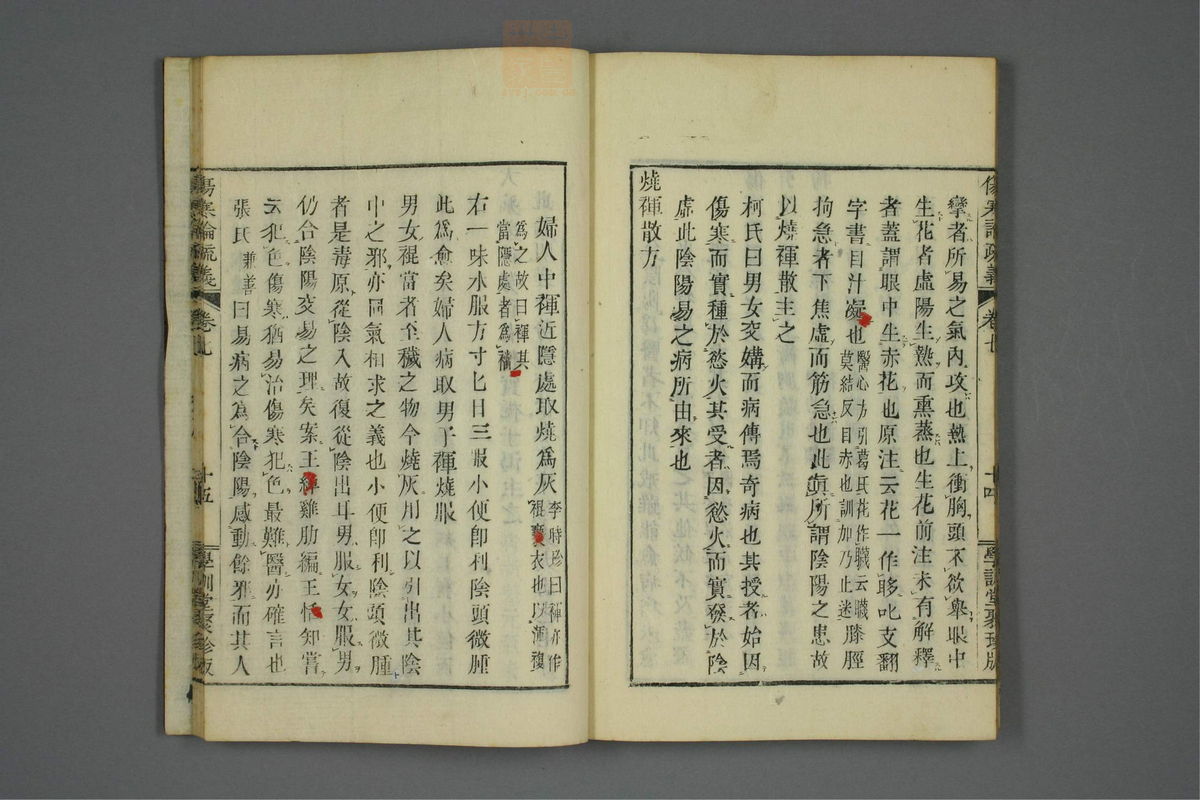 傷寒論疏義 卷七 十四 學訓堂聚珍版
攣者所易之氣內攻也熱上衝胸頭不欲舉眼中
生花者虛陽生熱而熏蒸也生花前注未有解釋
者蓋謂眼中生赤花也原注云花一作眵叱支翻
字書目汁凝也醫心方引葛氏花作䁾云䁾
莫結反目赤也訓加乃止迷膝脛
拘急者下焦虛而筋急也此眞所謂陰陽之患故
以燒裈散主之
柯氏曰男女交媾而病傳焉奇病也其授者始因
傷寒而實種於慾火其受者因慾火而實發於陰
虛此陰陽易之病所由來也
燒裈散方
婦人中裈近隱處取燒爲灰李時珍曰裈亦作
裩褻衣也以渾複
爲之故曰裈其
當隱處者爲襠
右一味水服方寸匕日三服小便卽利陰頭微腫
此爲愈矣婦人病取男子裈燒服
男女裩當者至穢之物今燒灰用之以引出其陰
中之邪亦同氣相求之義也小便卽利陰頭微腫
者是毒原從陰入故復從陰出耳男服女女服男
仍合陰陽交易之理矣案王綸雞肋編王恬知嘗
云犯色傷寒猶易治傷寒犯色最難醫亦確言也
張氏兼善曰易病之爲合陰陽感動餘邪而其人
傷寒論疏義 卷七 十五 學訓堂聚珍版